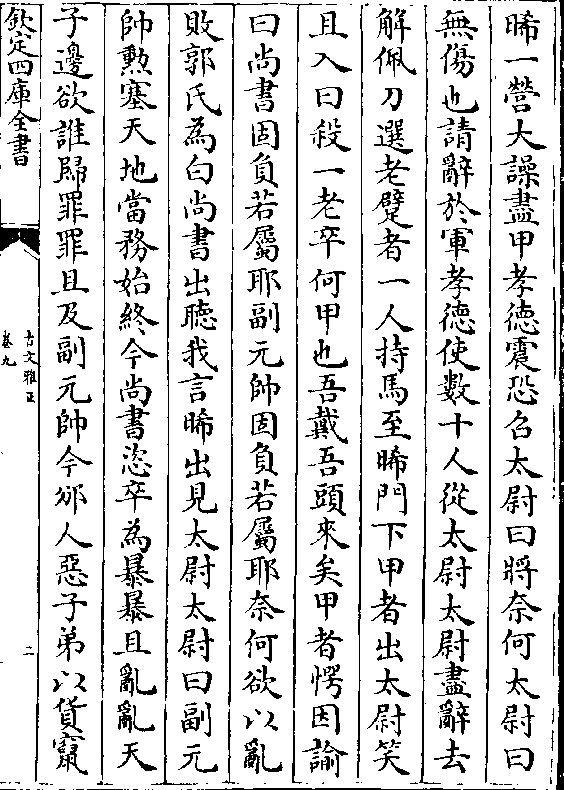 晞一營大譟盡甲孝德震恐召太尉曰將奈何太尉曰
無傷也請辭於軍孝德使數十人從太尉太尉盡辭去
解佩刀選老躄者一人持馬至晞門下甲者出太尉笑
且入曰殺一老卒何甲也吾戴吾頭來矣甲者愕因諭
曰尚書固負若屬耶副元帥固負若屬耶奈何欲以亂
敗郭氏為白尚書出聽我言晞出見太尉太尉曰副元
帥勲塞天地當務始終今尚書恣卒為暴暴且亂亂天
子邊欲誰歸罪罪且及副元帥今邠人惡子弟以貨竄
欽定四庫全書
古文雅正
卷九
二